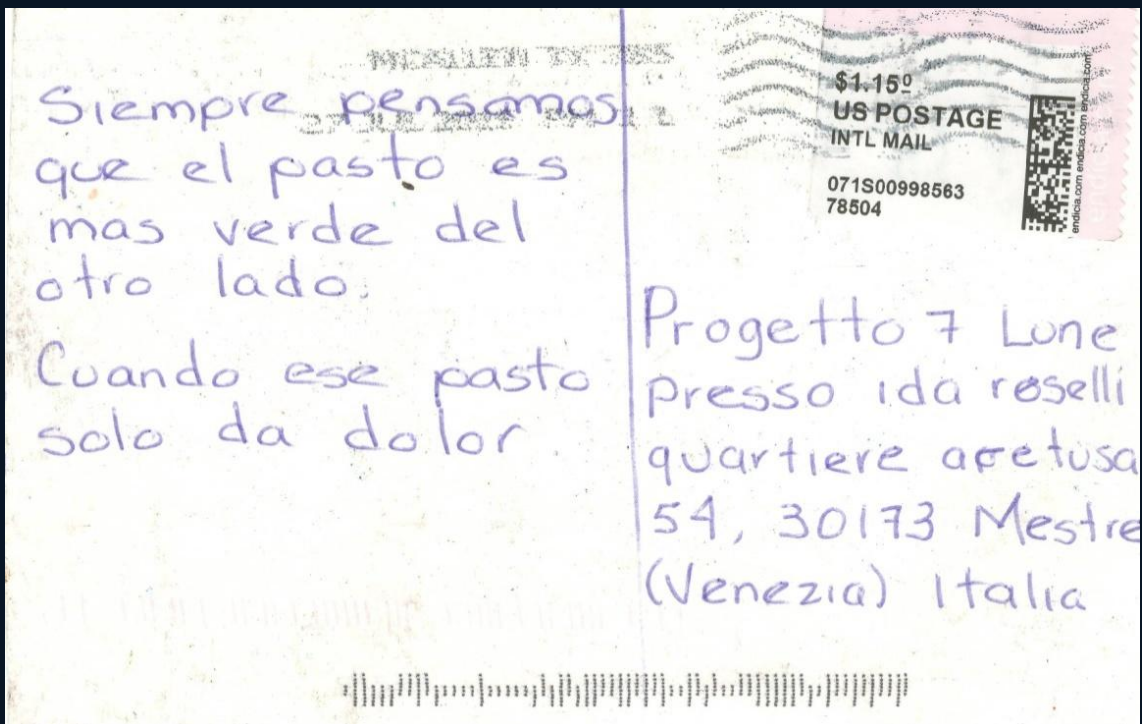 Siempre pensamos
que el pasto es
mas verde del
otro lado.
Cuando ese pasto
solo da dolor
$1.15⁰
US POSTAGE
INTL MAIL
071S00998563
78504
endicia.com endicia.com endicia.com
Progetto 7 Lune
presso ida roselli
quartiere aretusa
54, 30173 Mestre
(Venezia) Italia